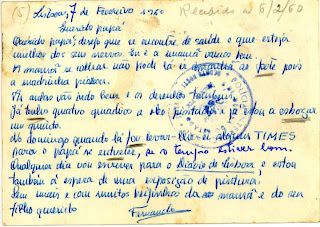 (5) Lisboa, 7 de Fevereiro 1960 Recebido a 8/2/60
Querido papá
Querido papá, desejo que se encontre de saúde e que esteja
melhor dos seus nervos. Eu e a mamã vamos bem.
A mamã
a madrinha
Os anões vão indo bem e os desenhos também.
Já tenho quatro quadros a óleo pintados e já estou a esboçar
um quinto.
No domingo quando lá for levar-lhe-ei alguns TIMES
para o papá se entreter, se o tempo estiver bom.
Qualquer dia vou escrever para o Diário de Lisboa, e estou
também à espera de uma exposição de pintura.
Sem mais e com muitos beijinhos da mamã e do seu
filho querido
Fernando